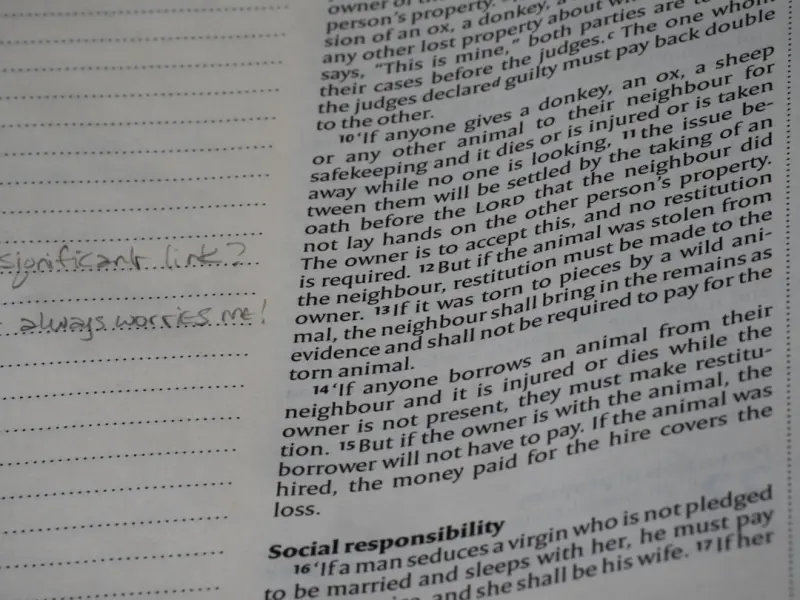 significant link?
always worries me!
owner of
person's property.
sion of an ox, a donkey, a
any other lost property about
says, "This is mine," both parties are to
their cases before the judges.c The one whom
the judges declared guilty must pay back double
to the other.
10 'If anyone gives a donkey, an ox, a sheep
or any other animal to their neighbour for
safekeeping and it dies or is injured or is taken
away while no one is looking, 11 the issue be-
tween them will be settled by the taking of an
oath before the LORD that the neighbour did
not lay hands on the other person's property.
The owner is to accept this, and no restitution
is required. 12 But if the animal was stolen from
the neighbour, restitution must be made to the
owner. 13 If it was torn to pieces by a wild ani-
mal, the neighbour shall bring in the remains as
evidence and shall not be required to pay for the
torn animal.
14 'If anyone borrows an animal from their
neighbour and it is injured or dies while the
owner is not present, they must make restitu-
tion. 15 But if the owner is with the animal, the
borrower will not have to pay. If the animal was
hired, the money paid for the hire covers the
loss.
Social responsibility
16 'If a man seduces a virgin who is not pledged
to be married and sleeps with her, he must pay
and she shall be his wife. 17 If her